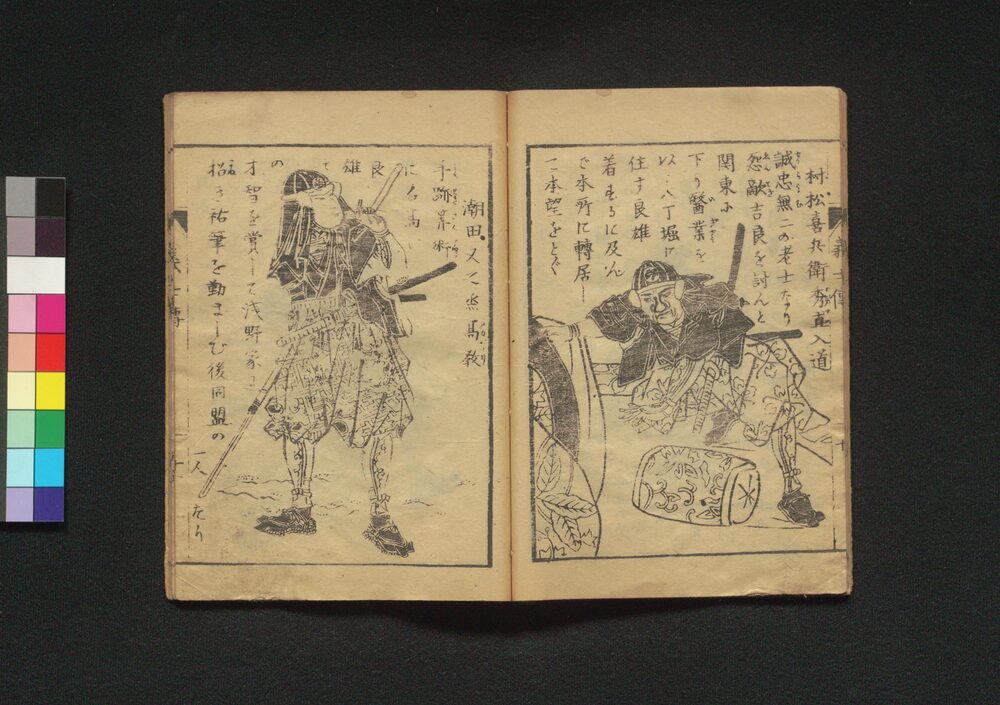 村松喜兵衛秀直入道
誠忠無二の老士なり
怨敵吉良を討んと
関東に
下り醫業を
以八丁堀に
住す良雄
着するに及んで
本所に轉居し
て本望をとぐ
潮田又之丞高教
手跡
に名高
良雄
の
才智を賞して浅野家に
招き祐筆を勤ましむ後同盟の
一人なり
義士傳